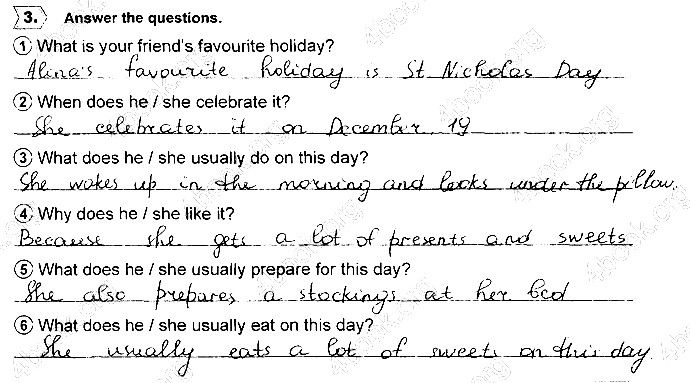 3. Answer the questions.
① What is your friend's favourite holiday?
Alina's favourite holiday is St. Nicholas Day
② When does he / she celebrate it?
She celebrates it on December 19
③ What does he / she usually do on this day?
She wakes up in the morning and looks under the pillow.
④ Why does he / she like it?
Because she gets a lot of presents and sweets.
⑤ What does he / she usually prepare for this day?
She also prepares a stockings at her bed
⑥ What does he / she usually eat on this day?
She usually eats a lot of sweets on this day.